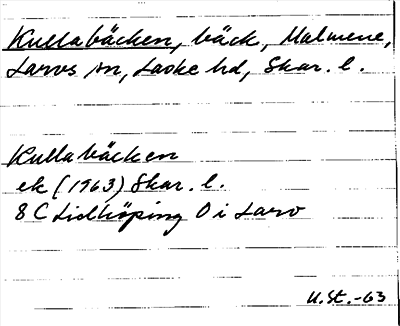 Kullabäcken, bäck, Malmene,
Larvs sn, Laske hd, Skar. l.
Kullabäcken
ek (1963) Skar. l.
8 C Lidköping O i Larv
U.St.-63